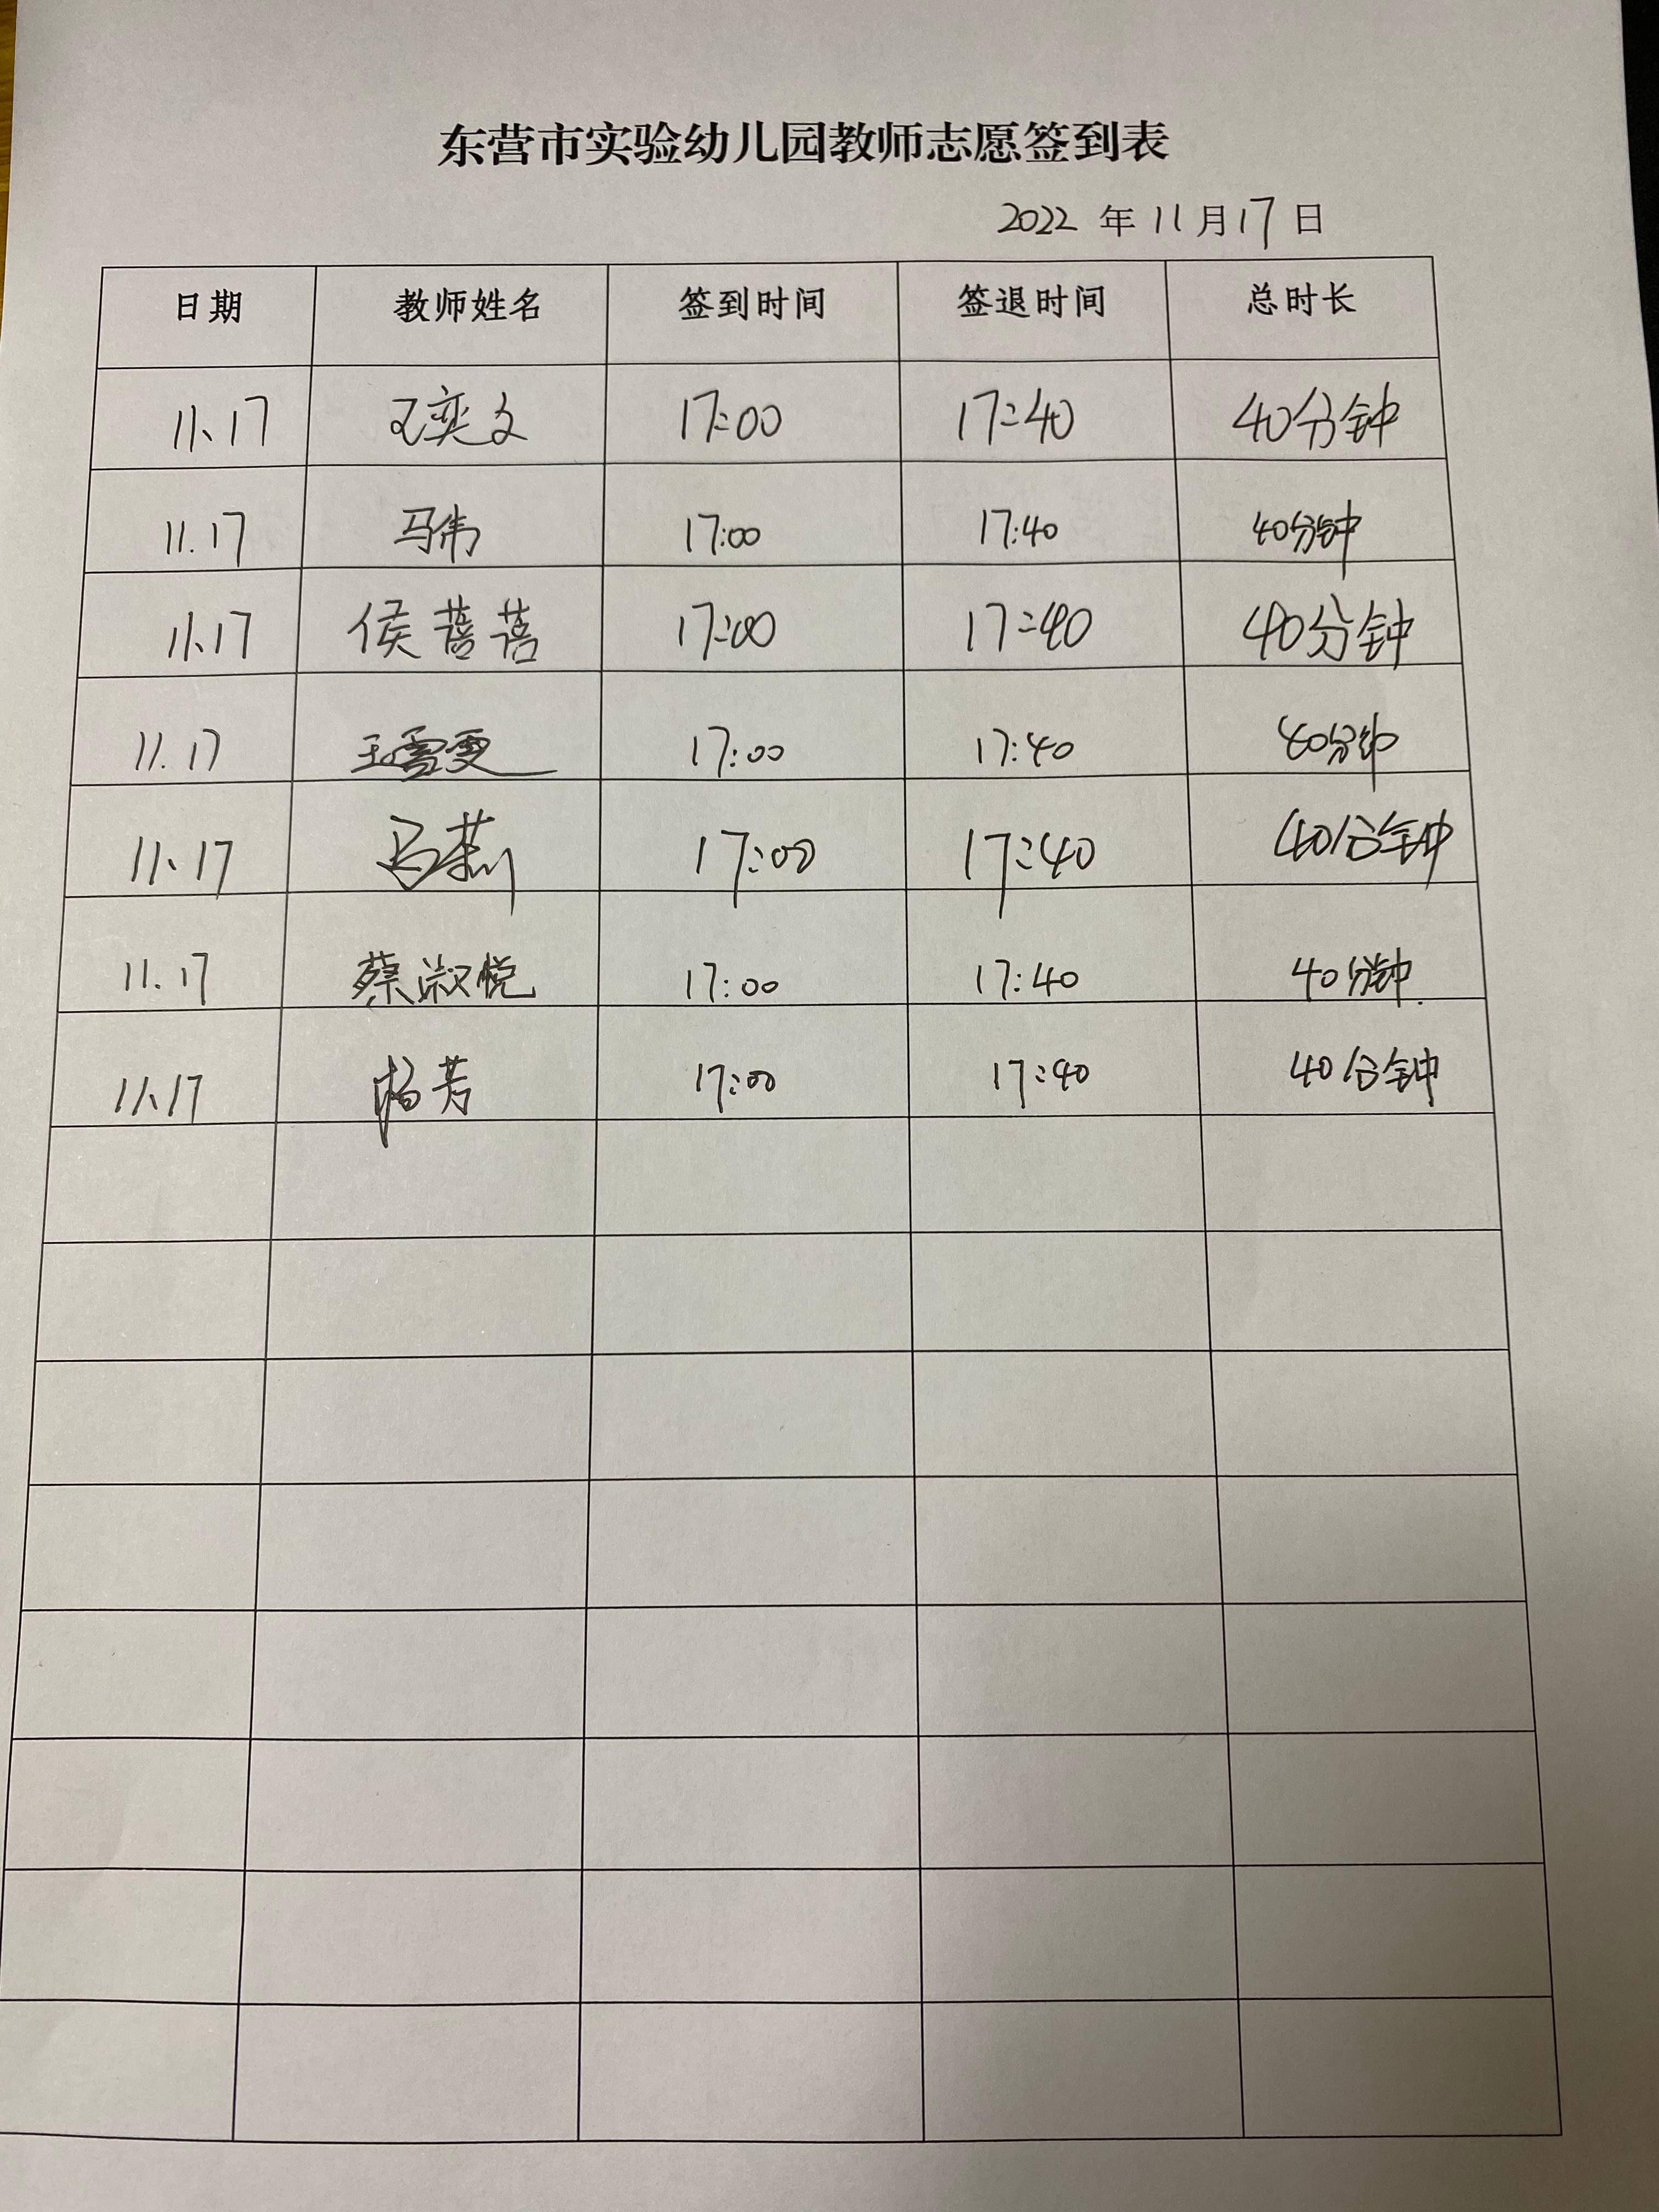 东营市实验幼儿园教师志愿签到表
2022 年 11 月 17 日
日期 教师姓名 签到时间 签退时间 总时长
11、17 王奕文 17:00 17:40 40分钟
11.17 马伟 17:00 17:40 40分钟
11.17 侯蓓蓓 17:00 17:40 40分钟
11.17 王雪雯 17:00 17:40 40分钟
11、17 马燕 17:00 17:40 40分钟
11.17 蔡淑悦 17:00 17:40 40分钟.
11、17 杨芳 17:00 17:40 40分钟